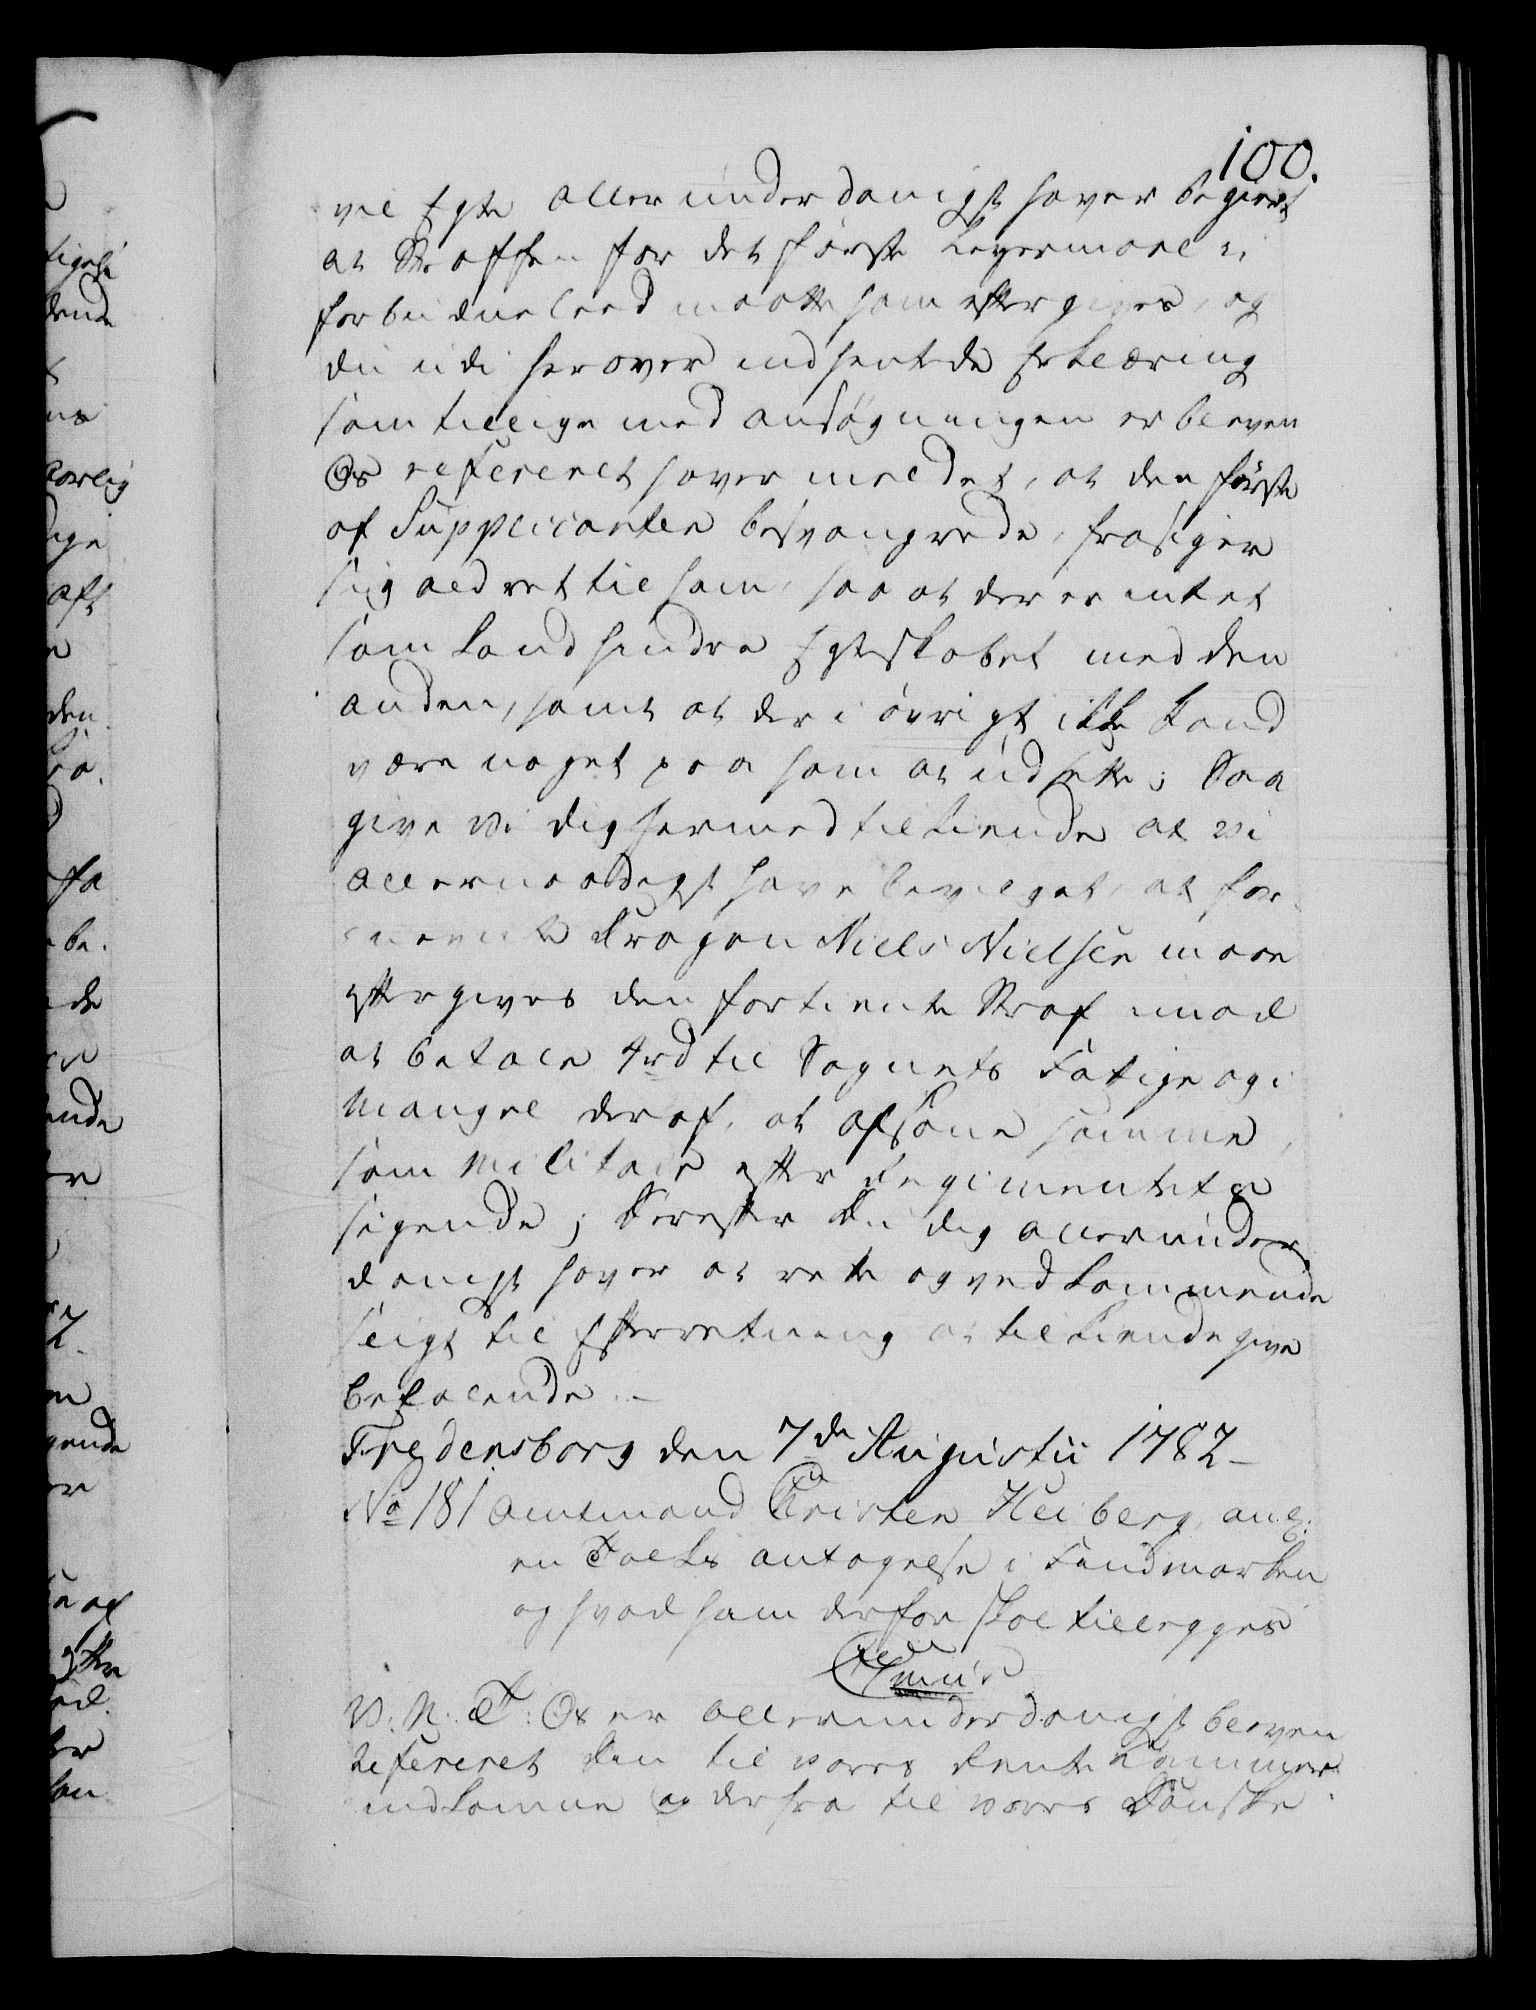 100.
vil Egte allerunderdanigst haver begiert
at Straffen for det første Leyermaal i
forbudne leed maatte ham eftergives, og
du udi herover indhentede Erklæring
som tillige med ansøgningen er bleven
Os refereret haver meldet, at den første
af Supplicanten besvangrede, frasiger
sig ald ret til ham, saa at der er intet
som kand hindre Egteskabet med den
anden, samt at der i øvrigt ikke kand
være noget paa ham at udsette; Saa
give Vi dig hermed tilkiende at vi
allernaadigst have bevilget, at for
nævnte Dragon Niels Nielsen maae
eftergives den fortiente Straf imod
at betale 4 rd til Sognets Fattige og i
Mangel deraf, at afsone samme,
som Militair efter Regimentets
sigende; Derefter du dig allerunder
danigst haver at rette og vedkommende
sligt til Efterretning at tilkiendegive
befalende.-
Fredensborg den 7de Augustii 1782-
No 181 Amtmand Christen Heiberg, anl:
en Tolks antagelse i Findmarken
og hvad ham derfor skal tillegges

V. N. T: Os er allerunderdanigst bleven
refereret den til vores Rente Kammer
indkomne og derfra til vores Danske